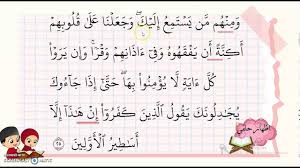 وَمِنْهُم مَّن يَسْتَمِعُ إِلَيْكَ ۖ وَجَعَلْنَا عَلَىٰ قُلُوبِهِمْ
أَكِنَّةً أَن يَفْقَهُوهُ وَفِىٓ ءَاذَانِهِمْ وَقْرًا ۚ وَإِن يَرَوْا۟
كُلَّ ءَايَةٍ لَّا يُؤْمِنُوا۟ بِهَا ۚ حَتَّىٰٓ إِذَا جَآءُوكَ
يُجَٰدِلُونَكَ يَقُولُ ٱلَّذِينَ كَفَرُوٓا۟ إِنْ هَٰذَآ إِلَّآ
أَسَٰطِيرُ ٱلْأَوَّلِينَ ٢٥
إظهار حلقي